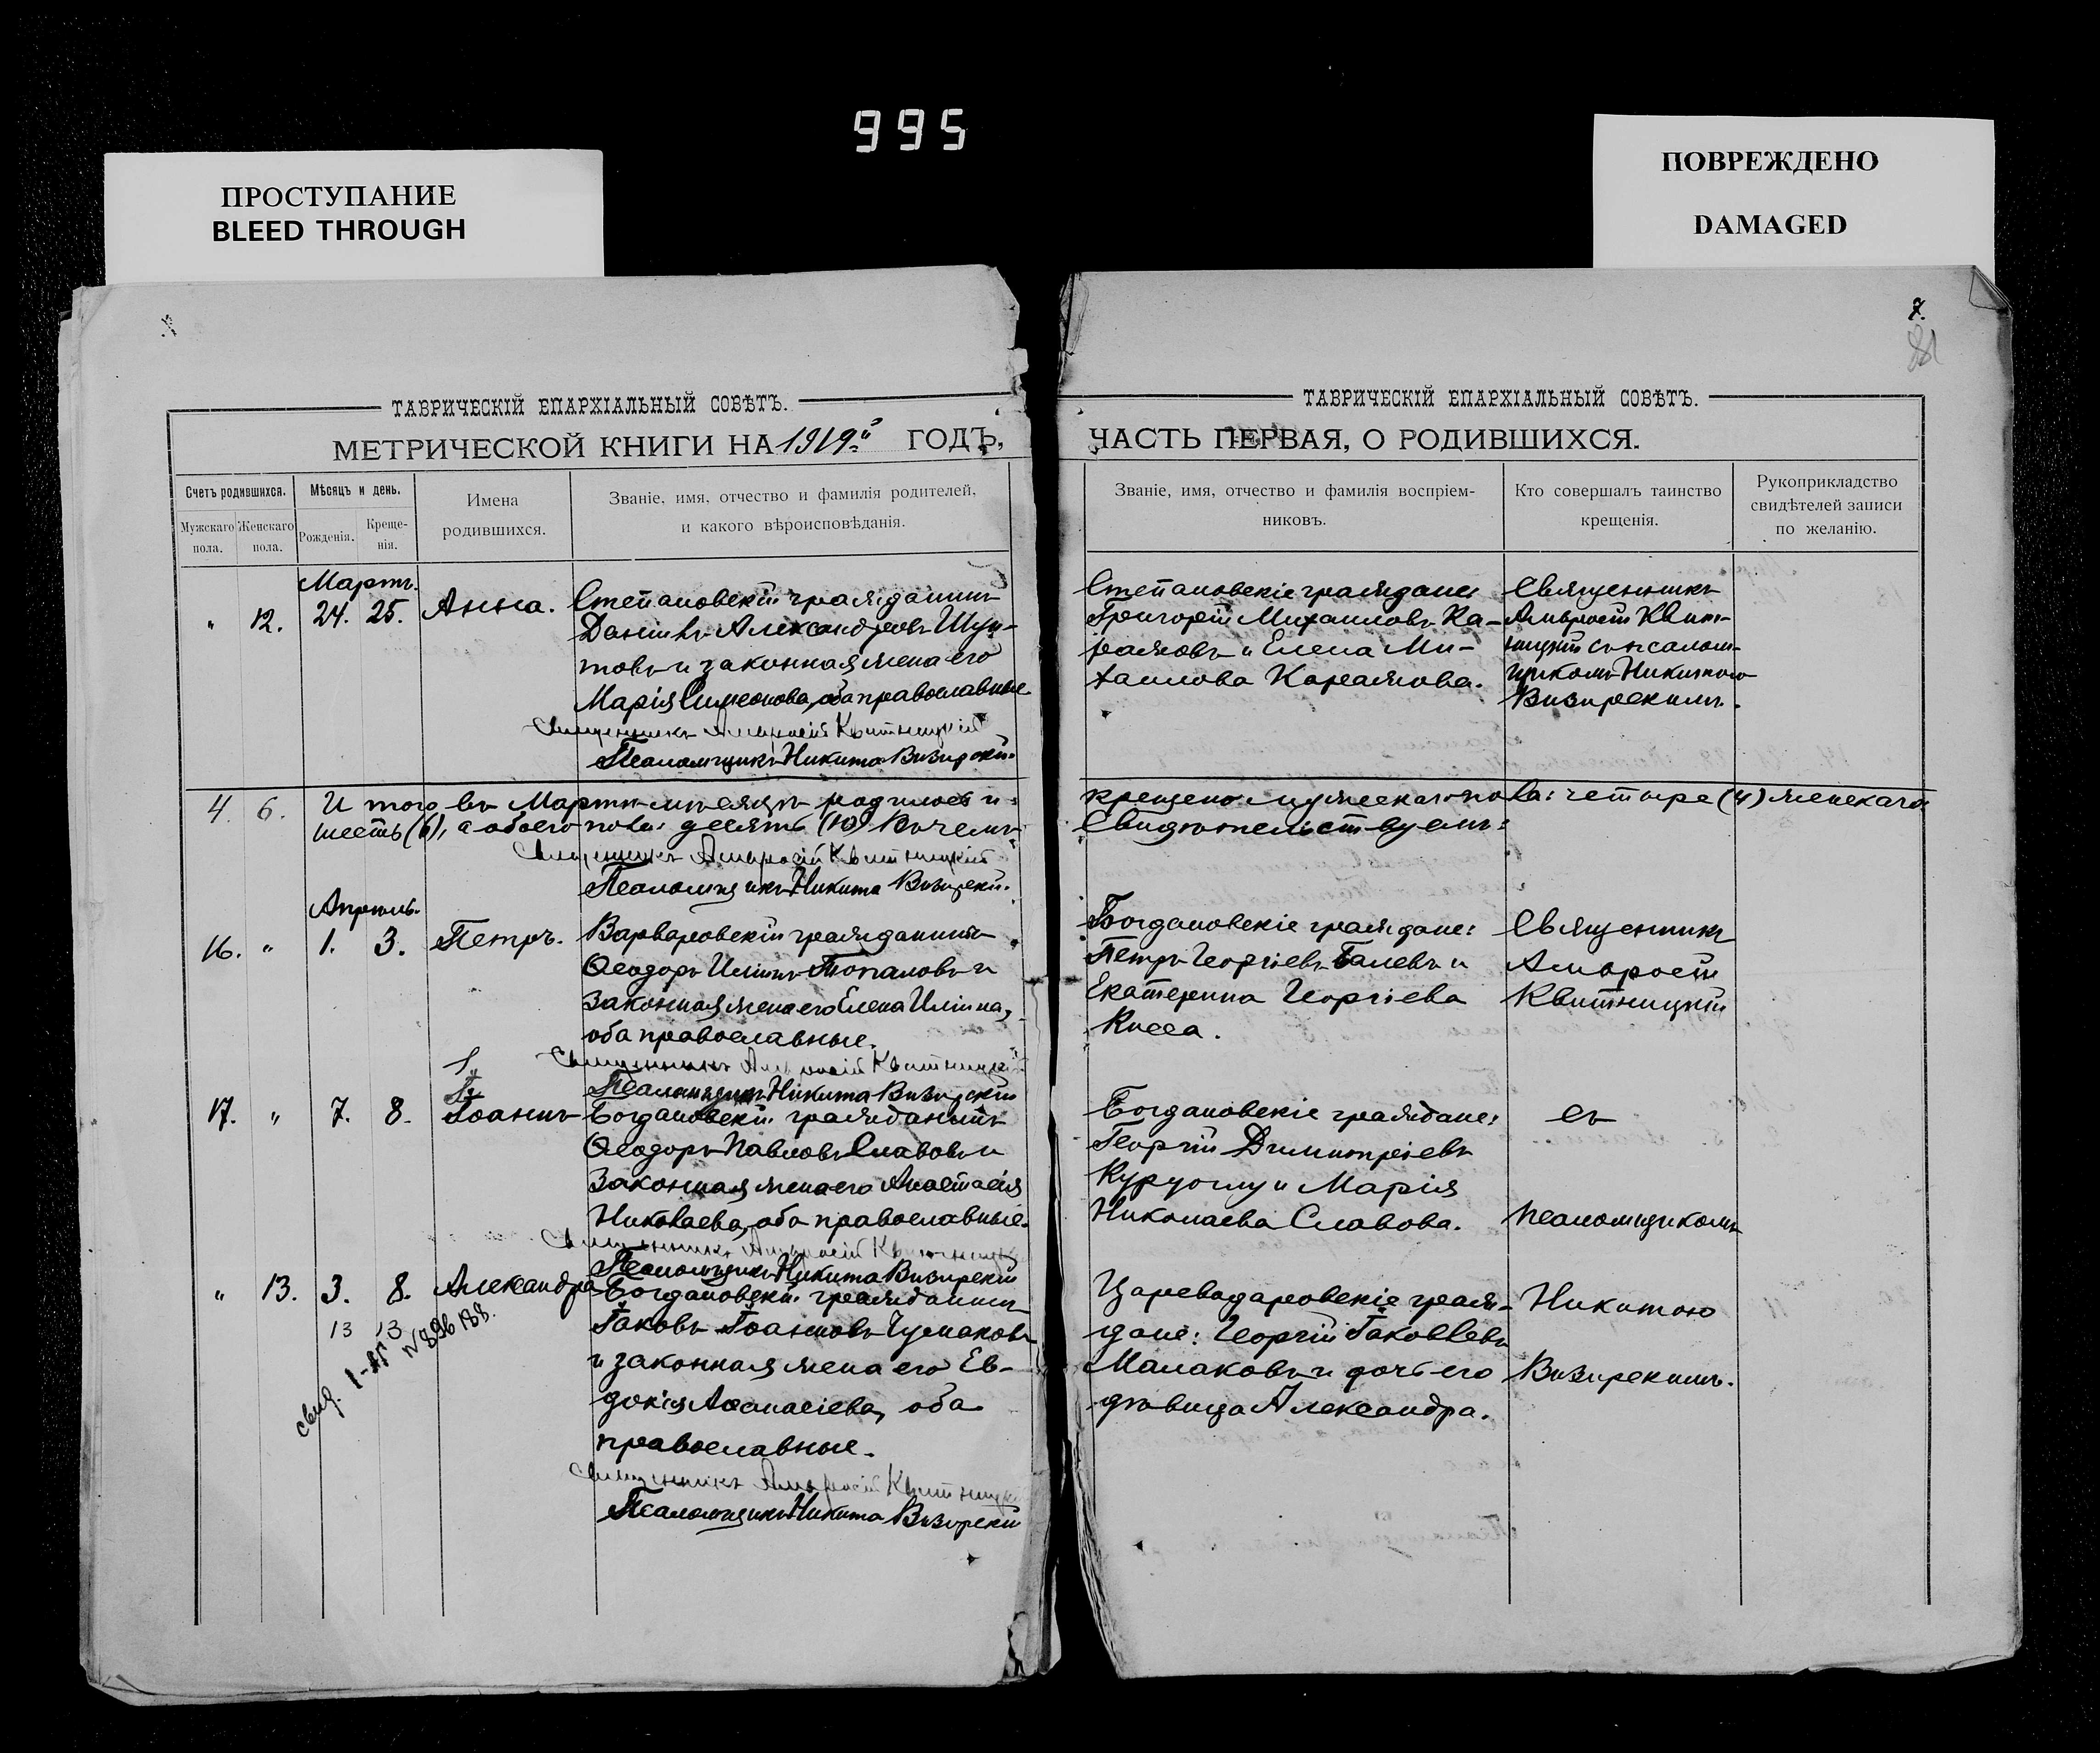 995
ПРОСТУПАНИЕ
BLEED THROUGH
ПОВРЕЖДЕНО
DAMAGED
7.
ТАВРИЧЕСКІЙ ЕПАРХІАЛЬНЫЙ СОВѢТЪ.
МЕТРИЧЕСКОЙ КНИГИ НА 1919й ГОДЪ,
Счетъ родившихся.
Мужскаго пола.
Женскаго пола.
Мѣсяцъ и день.
Рожденія.
Креще-
нія.
Имена
родившихся.
Званіе, имя, отчество и фамилія родителей,
и какого вѣроисповѣданія.
Мартъ.
" 12. 24. 25. Анна. Степановскій гражданинъ
Даніилъ Александровъ Шун-
товъ и законная жена его
Марія Симеонова, оба православные
Священникъ Амвросій Квитницкій
Псаломщикъ Никита Визирскій.
4. 6. И того въ Мартѣ мѣсяцѣ родилось и
шесть (6), а обоего пола: десять (10) В чемъ
Священникъ Амвросій Квитницкій
Псаломщикъ Никита Визирскій.
Апрѣль.
16. " 1. 3. Петръ. Варваровскій гражданинъ
Ѳеодоръ Иліинъ Топаловъ и
законная жена его Елена Иліина,
оба православные.
Священникъ Амвросій Квитницкій
Псаломщикъ Никита Визирскій
17. " 7. 8. Іоаннъ Богдановскій гражданинъ
Ѳеодоръ Павловъ Славовъ и
законная жена его Анастасія
Николаева, оба православные.
Священникъ Амвросій Квитницкій
Псаломщикъ Никита Визирскій
" 13. 3. 8. Александра Богдановскій гражданинъ
13 13
Іаковъ Іоанновъ Чумаковъ
и законная жена его Ев-
докія Аѳанасіева, оба
православные.
свид. N 896188.
Священникъ Амвросій Квитницкій
Псаломщикъ Никита Визирскій
ТАВРИЧЕСКІЙ ЕПАРХІАЛЬНЫЙ СОВѢТЪ.
ЧАСТЬ ПЕРВАЯ, О РОДИВШИХСЯ.
Званіе, имя, отчество и фамилія воспріем-
никовъ.
Кто совершалъ таинство
крещенія.
Рукоприкладство
свидѣтелей записи
по желанію.
Степановскіе граждане:
Григорій Михаиловъ Ка-
ражовъ и Елена Ми-
хаилова Каражова.
Священникъ
Амвросій Квит-
ницкій съ псалом-
щикомъ Никитою
Визирскимъ.
крещено: мужескаго пола: четыре (4) женскаго
Свидѣтельствуемъ:
Богдановскіе граждане:
Петръ Георгіевъ Балевъ и
Екатерина Георгіева
Кисса.
Священникъ
Амвросій
Квитницкій
Богдановскіе граждане:
Георгій Димитріевъ
Куруоглу и Марія
Николаева Славова.
съ
псаломщикомъ
Цареводаровскіе граж-
дане: Георгій Іаковлевъ
Малаковъ и дочь его
дѣвица Александра.
Никитою
Визирскимъ.